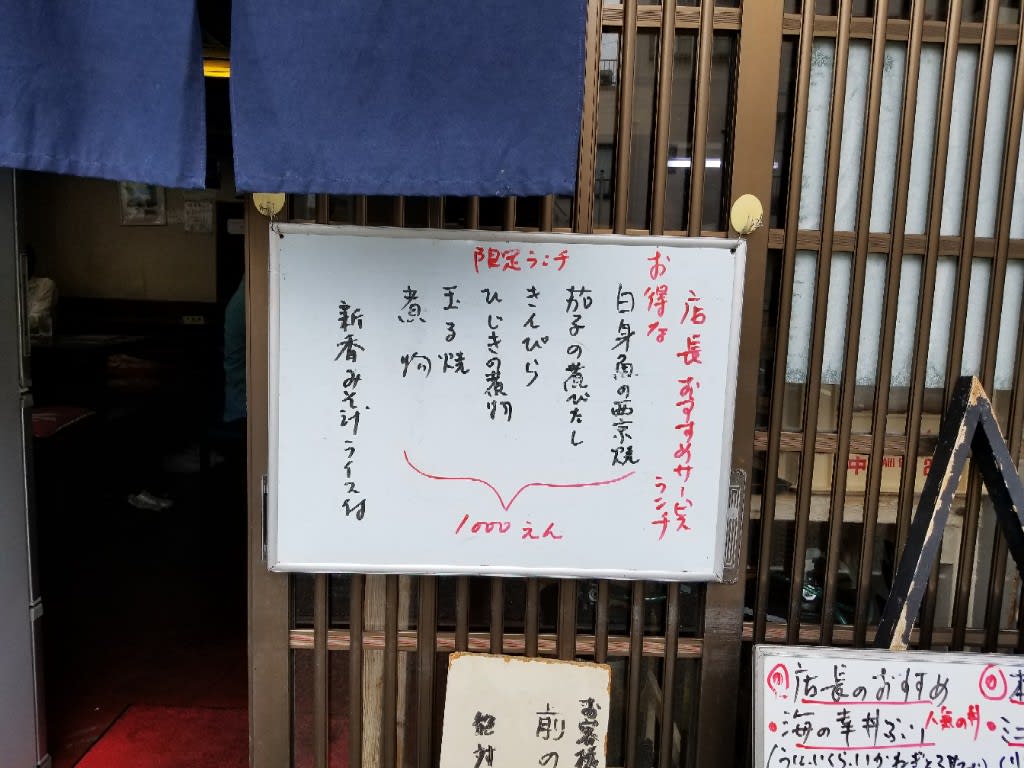 限定ランチ
お得な
店長おすすめサービス
ランチ
白身魚の西京焼
茄子の煮びたし
きんぴら
ひじきの煮物
玉子焼
煮物
新香みそ汁ライス付
1000えん
お客様
前の
絶対
店長のおすすめ
海の幸丼
人気の丼
中